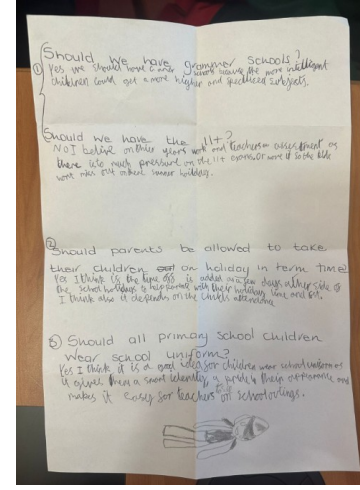 Should we have grammer schools?
① Yes we should have grammer schools because the more intelligent
children could get a more higher and specilized subjects.
Should we have the 11+?
NO I believe on there years work and teachers assessment as
there is to much pressure on the 11+ exams. Or move it so the kids
wont miss out on their summer holidays.
② Should parents be allowed to take
their children on holiday in term time?
Yes I think is the time off is added a few days either side of
the school holidays to help parents with their holidays time and cost.
I think also it depends on the childs attendance
3) Should all primary school children
wear school uniform?
Yes I think it is a good idea for children wear school uniform as
it gives them a smart identity, a pride in their appearance and
makes it easy for teachers on school outings.